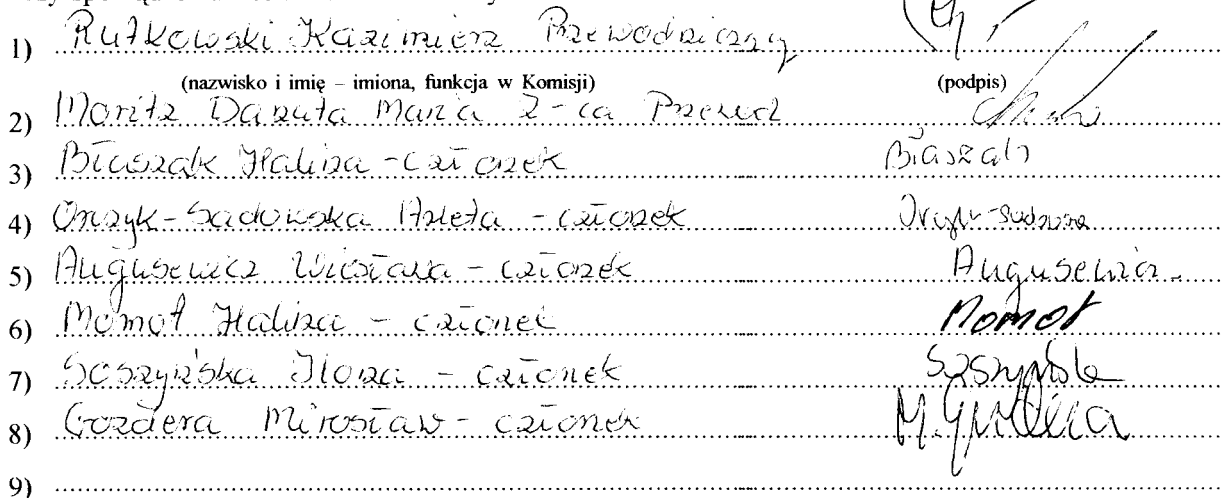 1) Rutkowski Kazimierz Przewodniczący
(nazwisko i imię – imiona, funkcja w Komisji) (podpis)
2) Moritz Danuta Maria Z-ca Przewod
3) Błaszak Halina - członek Błaszak
4) Onszyk-Sadowska Aneta - członek
5) Augusewicz Wiesława - członek Augusewicz
6) Momot Halina - członek Momot
7) Soszyńska Ilona - członek
8) Gozdera Mirosław - członek
9)